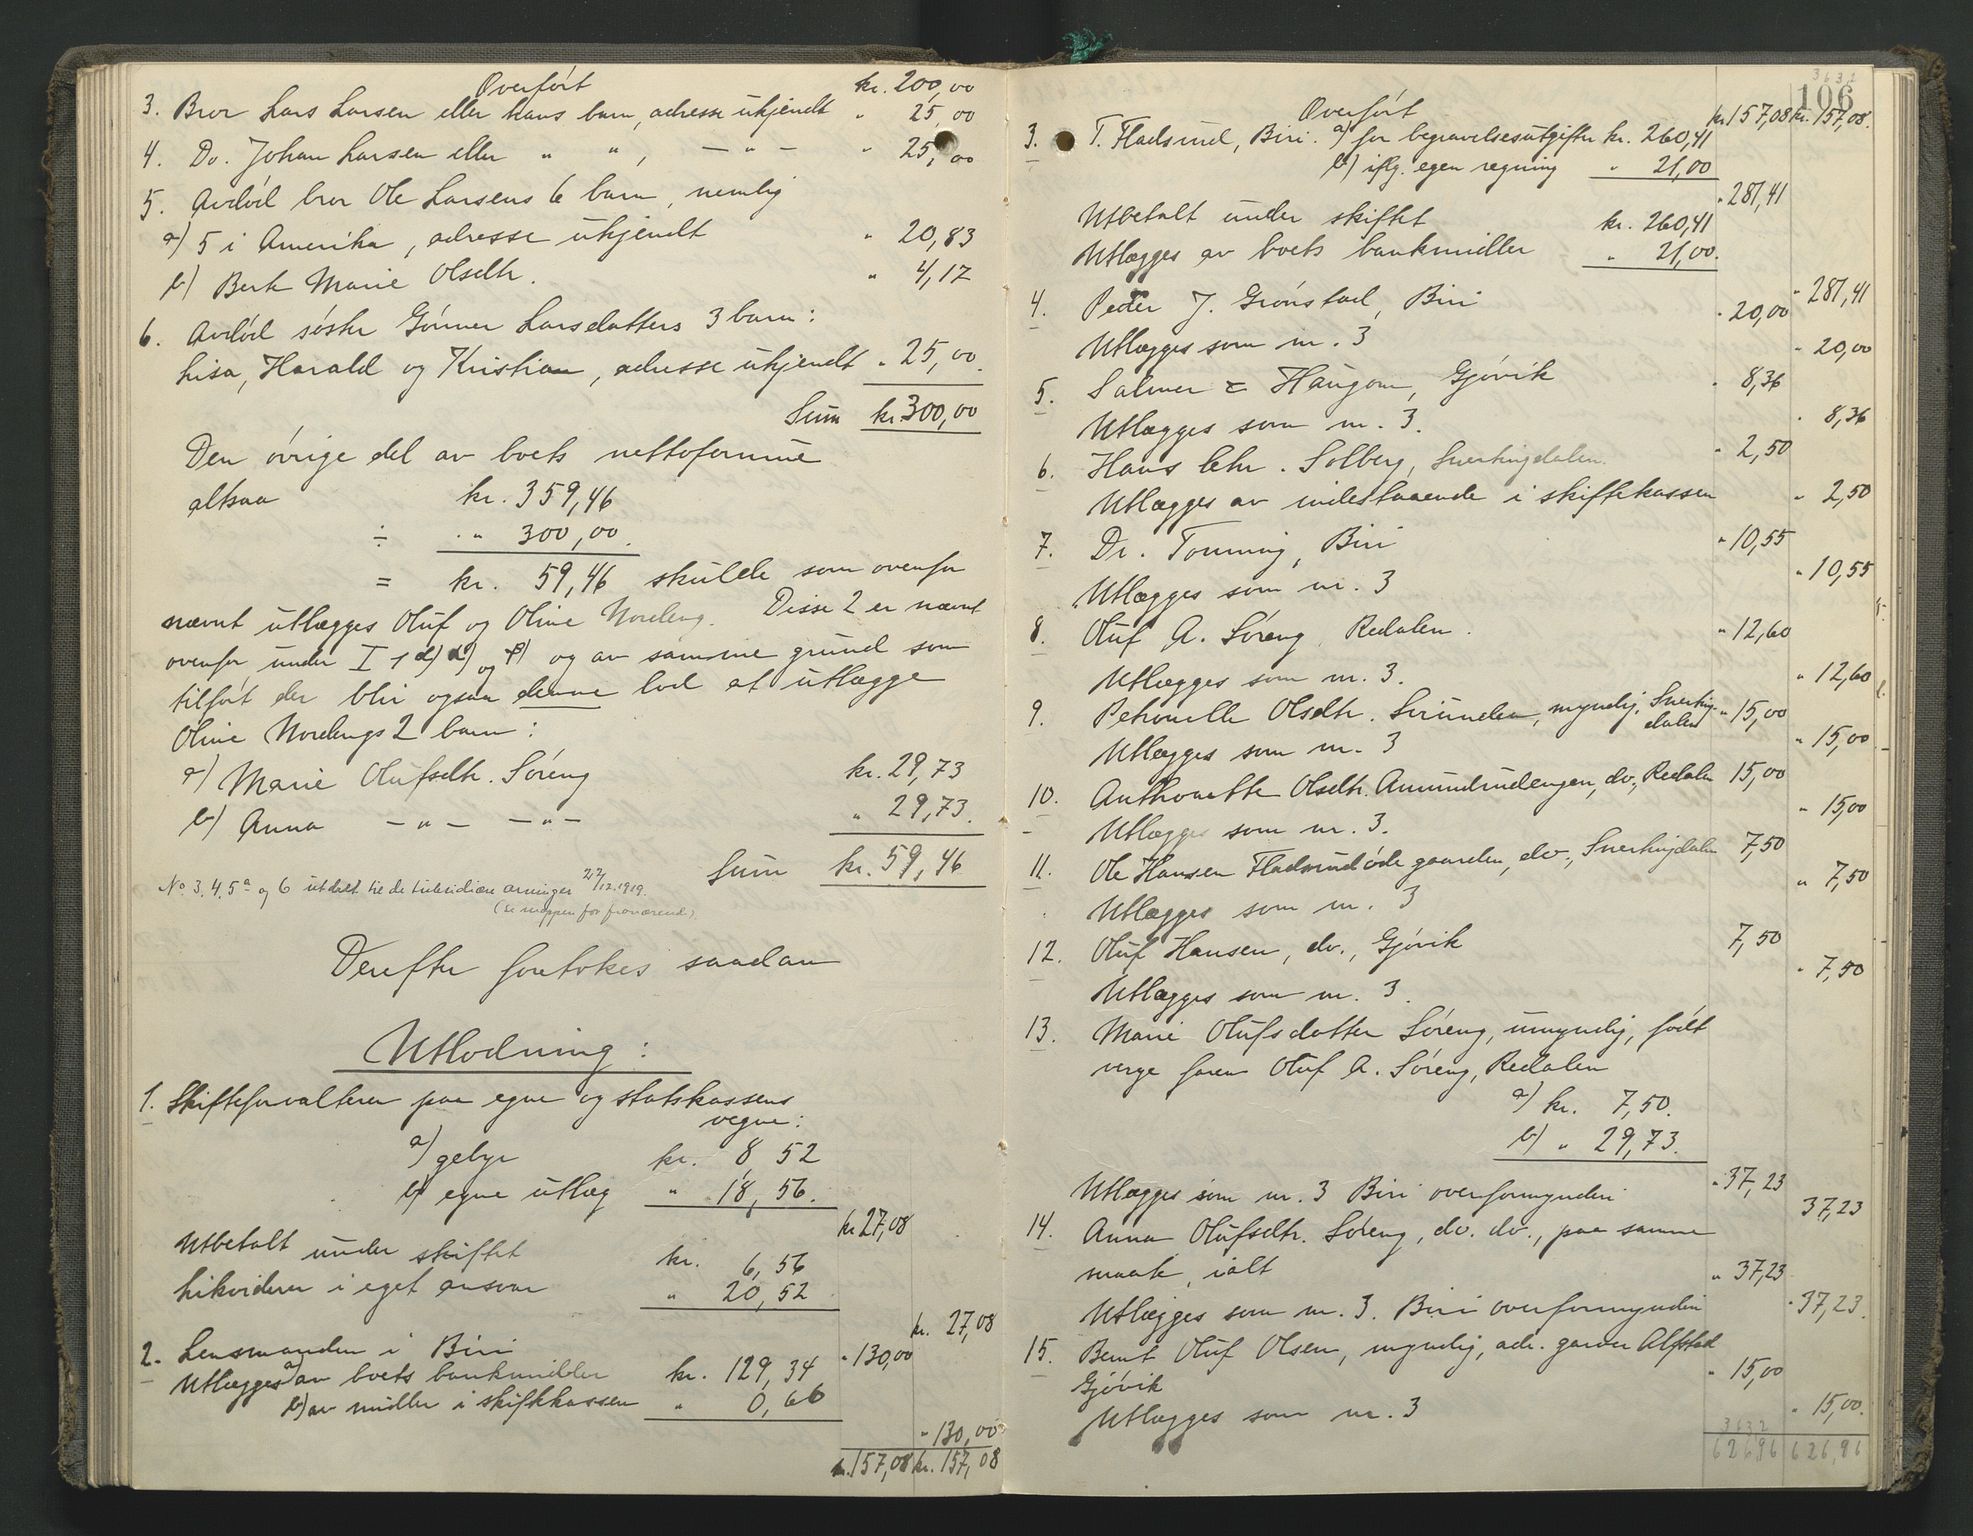 Overført kr. 200,00
3. Bror Lars Larsen eller hans barn, adresse ukjendt " 25,00
4. Do. Johan Larsen eller " " , — " — " 25,00
5. Avdød bror Ole Larsens 6 barn, nemlig
a) 5 i Amerika, adresse ukjendt " 20,83
b) Berte Marie Olsdtr. " 4,17
6. Avdød søster Gønner Larsdatters 3 barn:
Lisa, Harald og Kristian, adresse ukjendt " 25,00.
Sum kr. 300,00
Den øvrige del av boets nettoformue
altsaa kr. 359,46
÷ " 300,00.
= kr. 59,46 skulde som ovenfor
nævnt utlægges Oluf og Oline Nordeng. Disse 2 er nævnt
ovenfor under I 1 d) α) og β) og av samme grund som
tilført der blir ogsaa denne lod at utlægge
Oline Nordengs 2 barn:
a) Marie Olufsdtr. Søreng kr. 29,73
b) Anna — " — — " — " 29,73.
Sum kr. 59,46
No 3, 4, 5a og 6 utdelt til de subsidiære arvinger 22/12.1919.
(se mappen for fraværend.)
Derefter foretokes saadan
Utlodning:
1. Skifteforvalteren paa egne og statskassens
vegne:
a) gebyr kr. 8 52
b) egne utlæg " 18,56.
kr. 27,08
Utbetalt under skiftet kr. 6,56
Likviderer i eget ansvar " 20,52
kr. 27,08
2. Lensmanden i Biri " 130,00
Utlægges a) av boets bankmidler kr. 129,34
b) av midler i skiftekassen " 0,66
" 130,00
kr. 157,08 kr. 157,08
3632
106
Overført kr. 157,08 kr. 157,08.
3. T. Fladsrud, Biri. a) for begravelsesutgifter kr. 260,41
b) iflg. egen regning " 21,00
" 281,41
Utbetalt under skiftet kr. 260,41
Utlægges av boets bankmidler " 21,00.
" 281,41
4. Peder J. Grønstad, Biri " 20,00
Utlægges som nr. 3 " 20,00
5. Salmer & Haugom, Gjøvik " 8,36
Utlægges som nr. 3. " 8,36
6. Hans Chr. Solberg, Snertingdalen. " 2,50
Utlægges av indestaaende i skiftekassen " 2,50
7. Dr. Tonning, Biri " 10,55
Utlægges som nr. 3 " 10,55
8. Oluf A. Søreng, Redalen. " 12,60
Utlægges som nr. 3. " 12,60
9. Petronelle Olsdtr. Sveunden, myndig, Snerting-
dalen " 15,00
Utlægges som nr. 3 " 15,00
10. Anthonette Olsdtr. Amundrudengen, do., Redalen 15,00
Utlægges som nr. 3. " 15,00
11. Ole Hansen Fladsrudødegaarden, do., Snertingdalen 7,50
Utlægges som nr. 3 " 7,50
12. Oluf Hansen, do., Gjøvik 7,50
Utlægges som nr. 3. " 7,50
13. Marie Olufsdatter Søreng, umyndig, født
verge faren Oluf A. Søreng, Redalen
a) kr. 7,50.
b) " 29,73.
" 37,23
Utlægges som nr. 3 Biri overformynderi 37,23
14. Anna Olufsdtr. Søreng, do. do., paa samme
maate, ialt " 37,23
Utlægges som nr. 3. Biri overformynderi " 37,23.
15. Bernt Oluf Olsen, myndig, adr. garver Alfstad
Gjøvik " 15,00
Utlægges som nr. 3 " 15,00.
3632
626 96 626,96